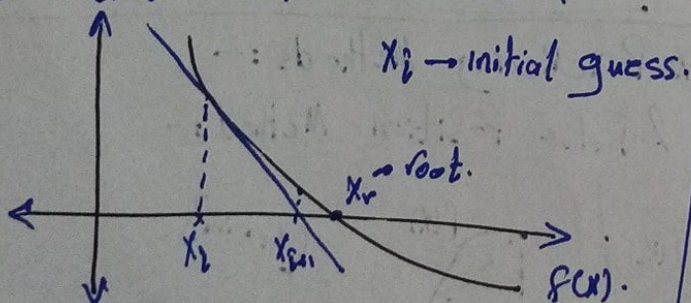 xᵢ → initial guess.
xᵣ → root.
xᵢ
xᵢ₊₁
f(x).